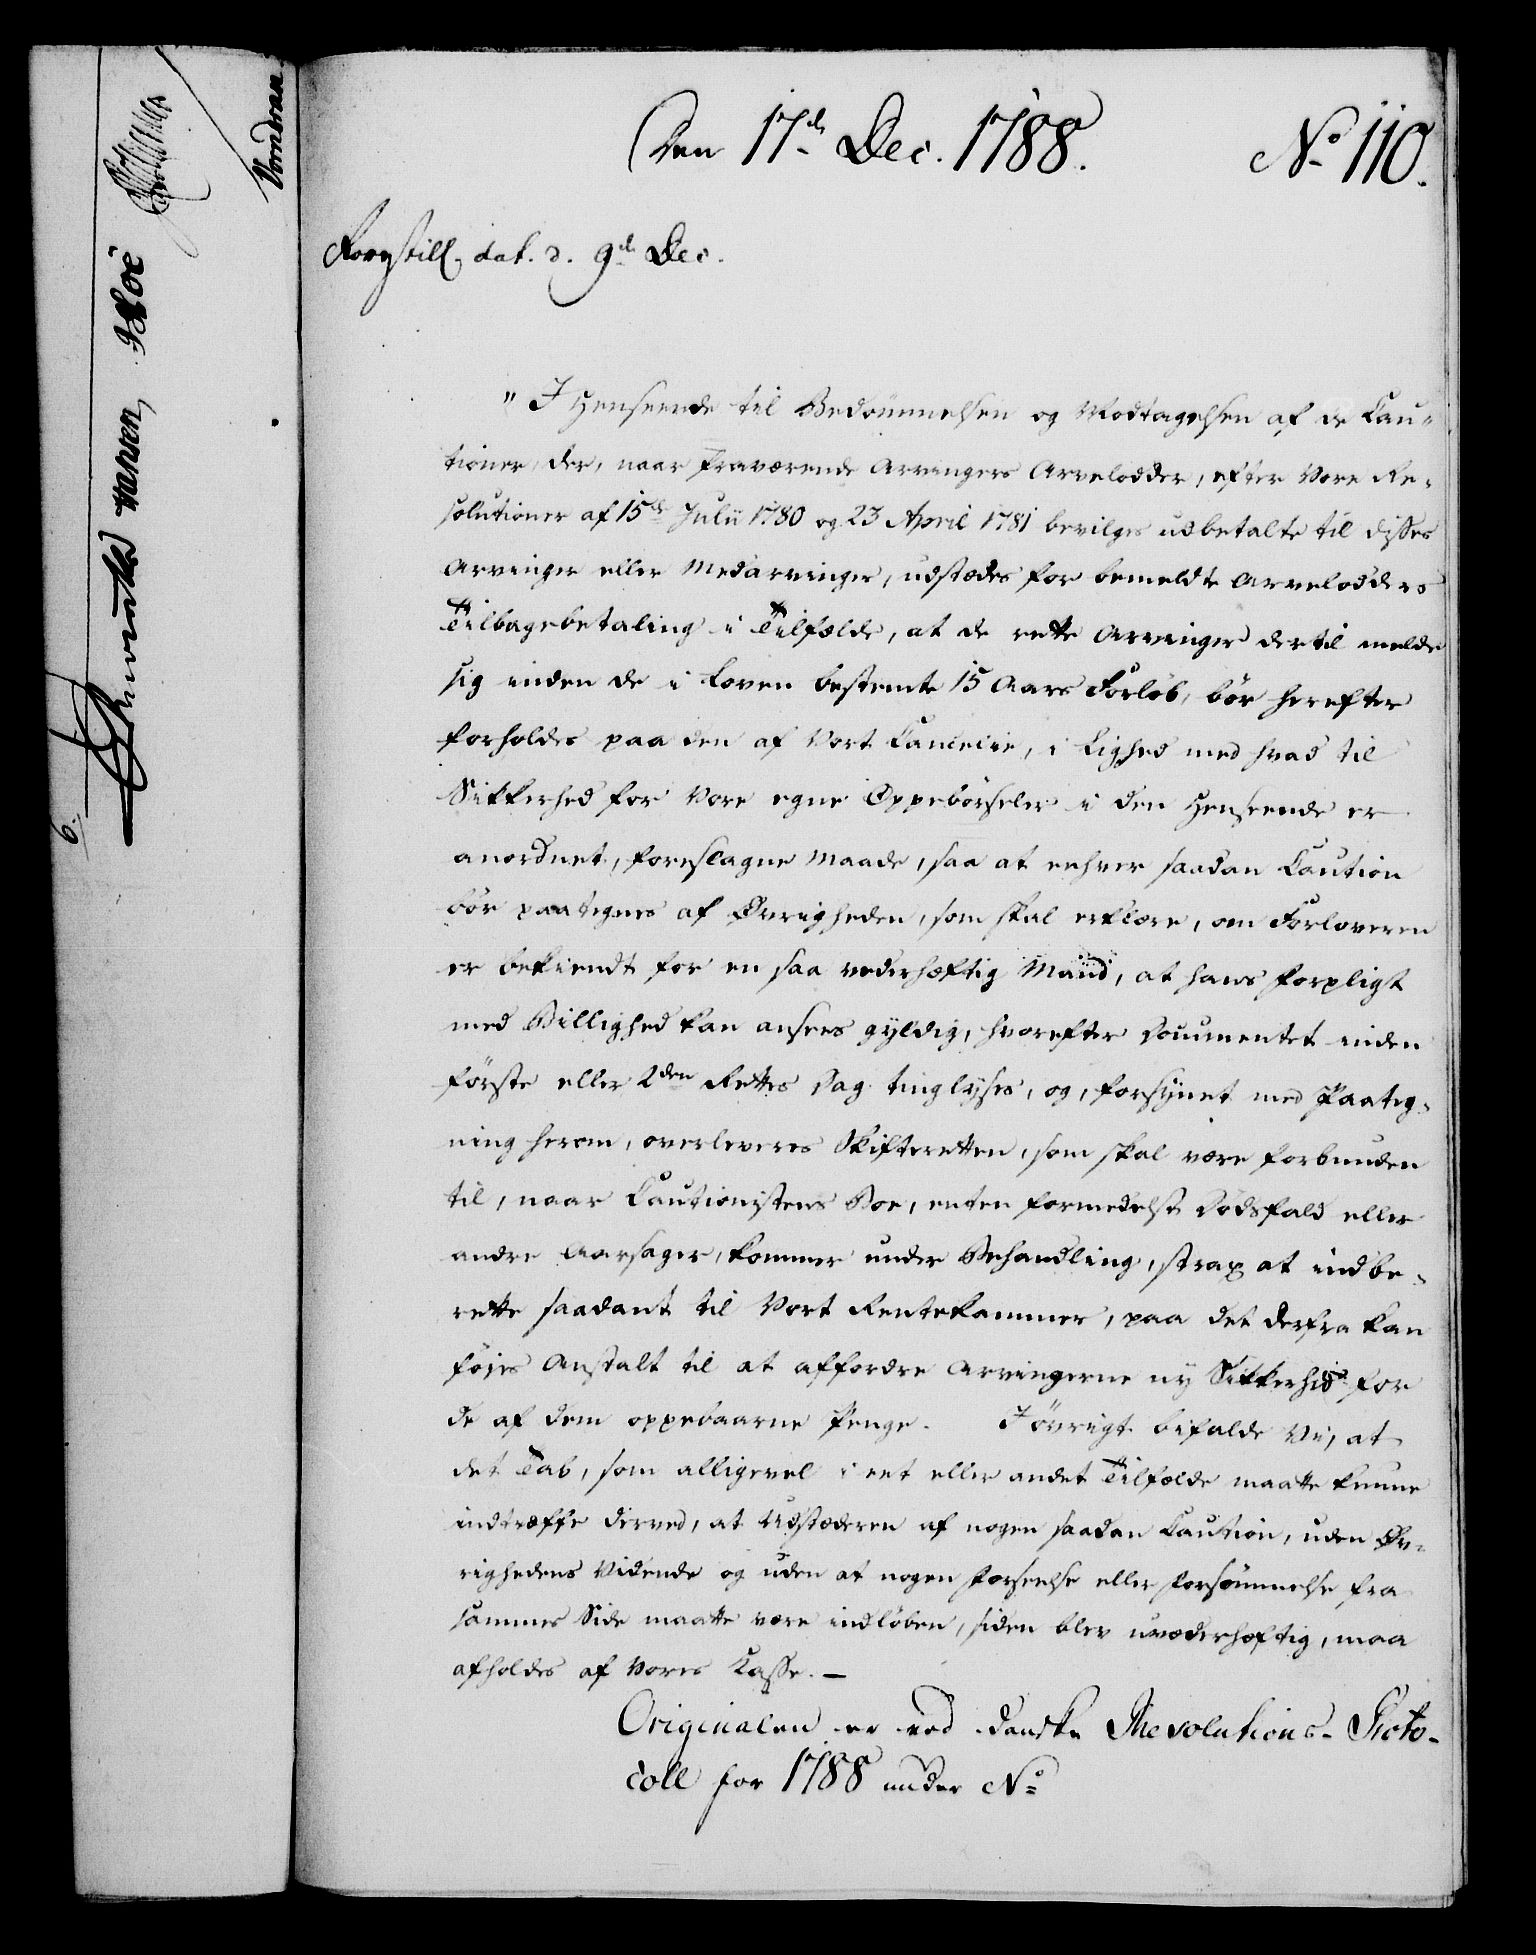 Den 17de Dec. 1788.
No 110.
Forestill. dat. d. 9de Dec.
" I Henseende til Bedömmelsen og Modtagelsen af de Cau-
tioner, der, naar fraværende Arvingers Arvelodder, efter Vore Re-
solutioner af 15de Julii 1780 og 23 April 1781 bevilges udbetalte til disses
Arvinger eller Medarvinger, udstædes for bemeldte Arvelodders
Tilbagebetaling i Tilfælde, at de rette Arvinger dertil melde
sig inden de i Loven bestemte 15 Aars Forlöb, bör herefter
forholdes paa den af Vort Cancelie, i Lighed med hvad til
Sikkerhed for Vore egne Oppebörseler i den Henseende er
anordnet, foreslagne Maade, saa at enhver saadan Caution
bör paategnes af Øvrigheden, som skal erklære, om Forloveren
er bekiendt for en saa vederhæftig Mand, at hans Forpligt
med Billighed kan ansees gyldig, hvorefter Documentet inden
förste eller 2den Rettes Dag tinglyses, og, forsynet med Paateg-
ning herom, overleveres Skifteretten, som skal være forbunden
til, naar Cautionistens Boe, enten formedelst Dödsfald eller
andre Aarsager, kommer under Behandling, strax at indbe-
rette saadant til Vort Rentekammer, paa det derfra kan
föjes Anstalt til at affordre Arvingerne ny Sikkerhed for
de af dem oppebaarne Penge. I övrigt bifalde Vi, at
det Tab, som alligevel i eet eller andet Tilfælde maatte kunne
indtræffe derved, at Udstæderen af nogen saadan Caution, uden Øv-
righedens Vidende og uden at nogen Forseelse eller Forsömmelse fra
sammes Side maatte være indlöben, siden blev uvæderhæftig, maa
afholdes af Vores Casse. —
Originalen er ved danske Resolutions-Proto-
coll for 1788 under No